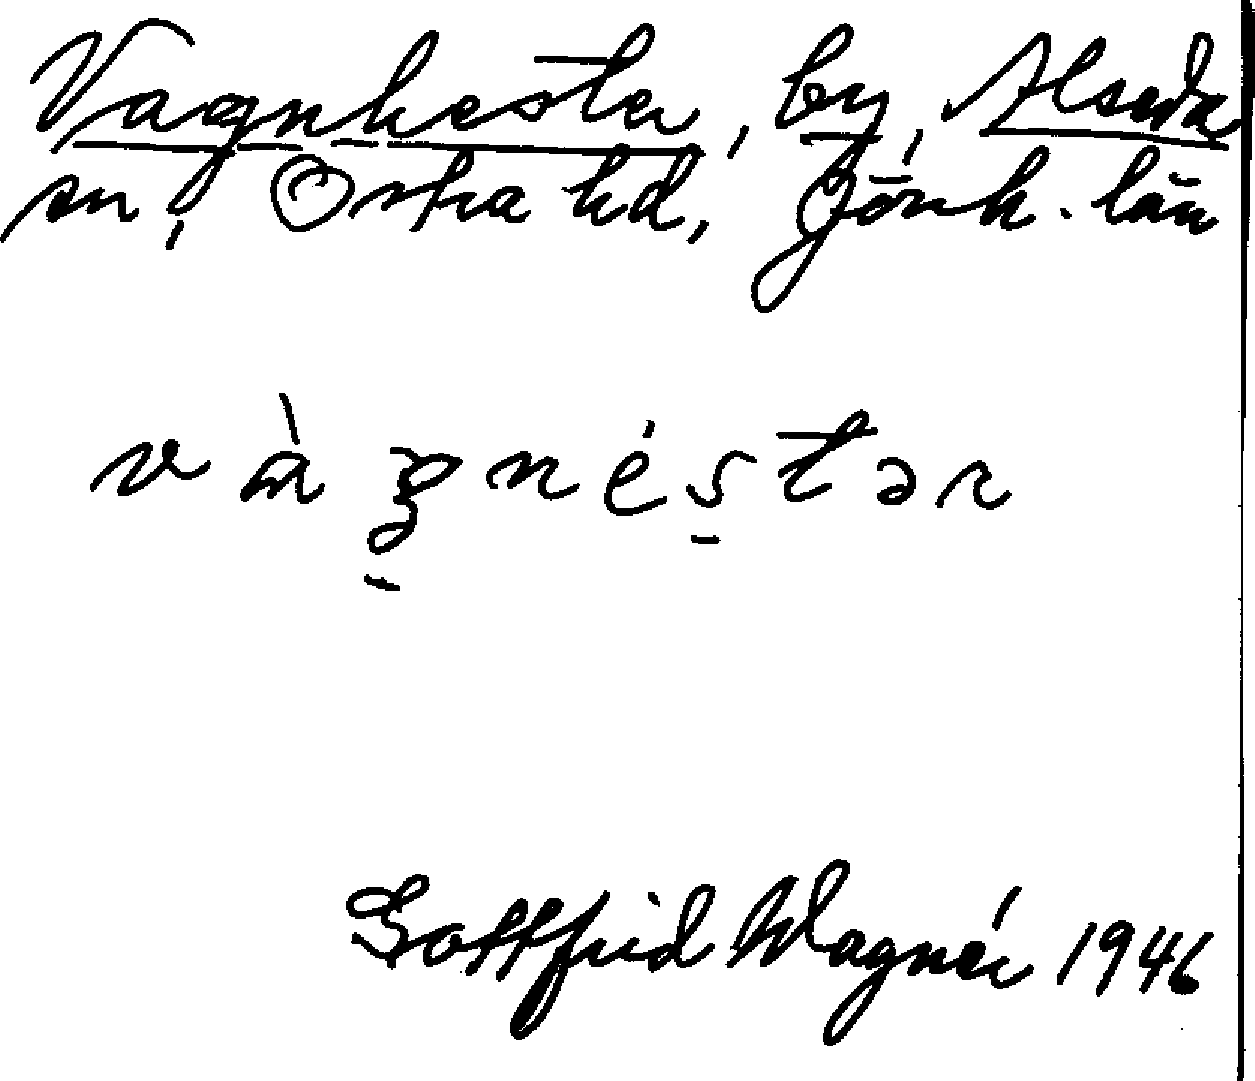 Vagnhester, by, Alseda
sn, Östra hd, Jönk. län
v à g n é s t ə r
Gottfrid Wagnér 1946